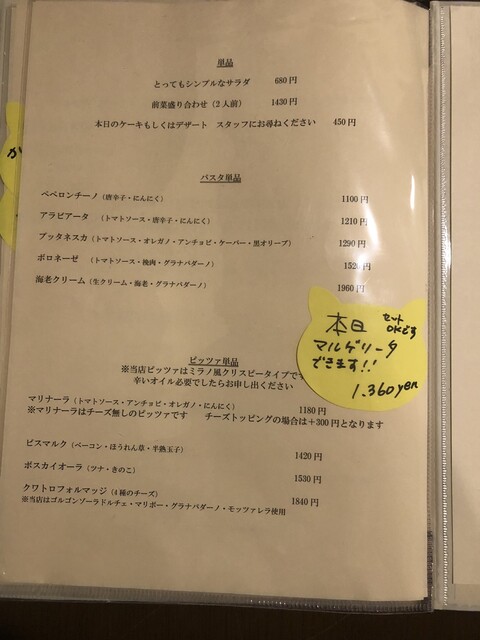 単品
とってもシンプルなサラダ 680円
前菜盛り合わせ（2人前） 1430円
本日のケーキもしくはデザート スタッフにお尋ねください 450円
パスタ単品
ペペロンチーノ（唐辛子・にんにく） 1100円
アラビアータ （トマトソース・唐辛子・にんにく） 1210円
プッタネスカ（トマトソース・オレガノ・アンチョビ・ケーパー・黒オリーブ） 1290円
ボロネーゼ （トマトソース・挽肉・グラナパダーノ） 1520円
海老クリーム（生クリーム・海老・グラナパダーノ） 1960円
本日 セット
OKです
マルゲリータ
できます!!
1.360yen
ピッツァ単品
※当店ピッツァはミラノ風クリスピータイプです
辛いオイル必要でしたらお申し出ください
マリナーラ（トマトソース・アンチョビ・オレガノ・にんにく） 1180円
※マリナーラはチーズ無しのピッツァです チーズトッピングの場合は＋300円となります
ビスマルク（ベーコン・ほうれん草・半熟玉子） 1420円
ボスカイオーラ（ツナ・きのこ） 1530円
クワトロフォルマッジ（4種のチーズ） 1840円
※当店はゴルゴンゾーラドルチェ・マリボー・グラナパダーノ・モッツァレラ使用
か